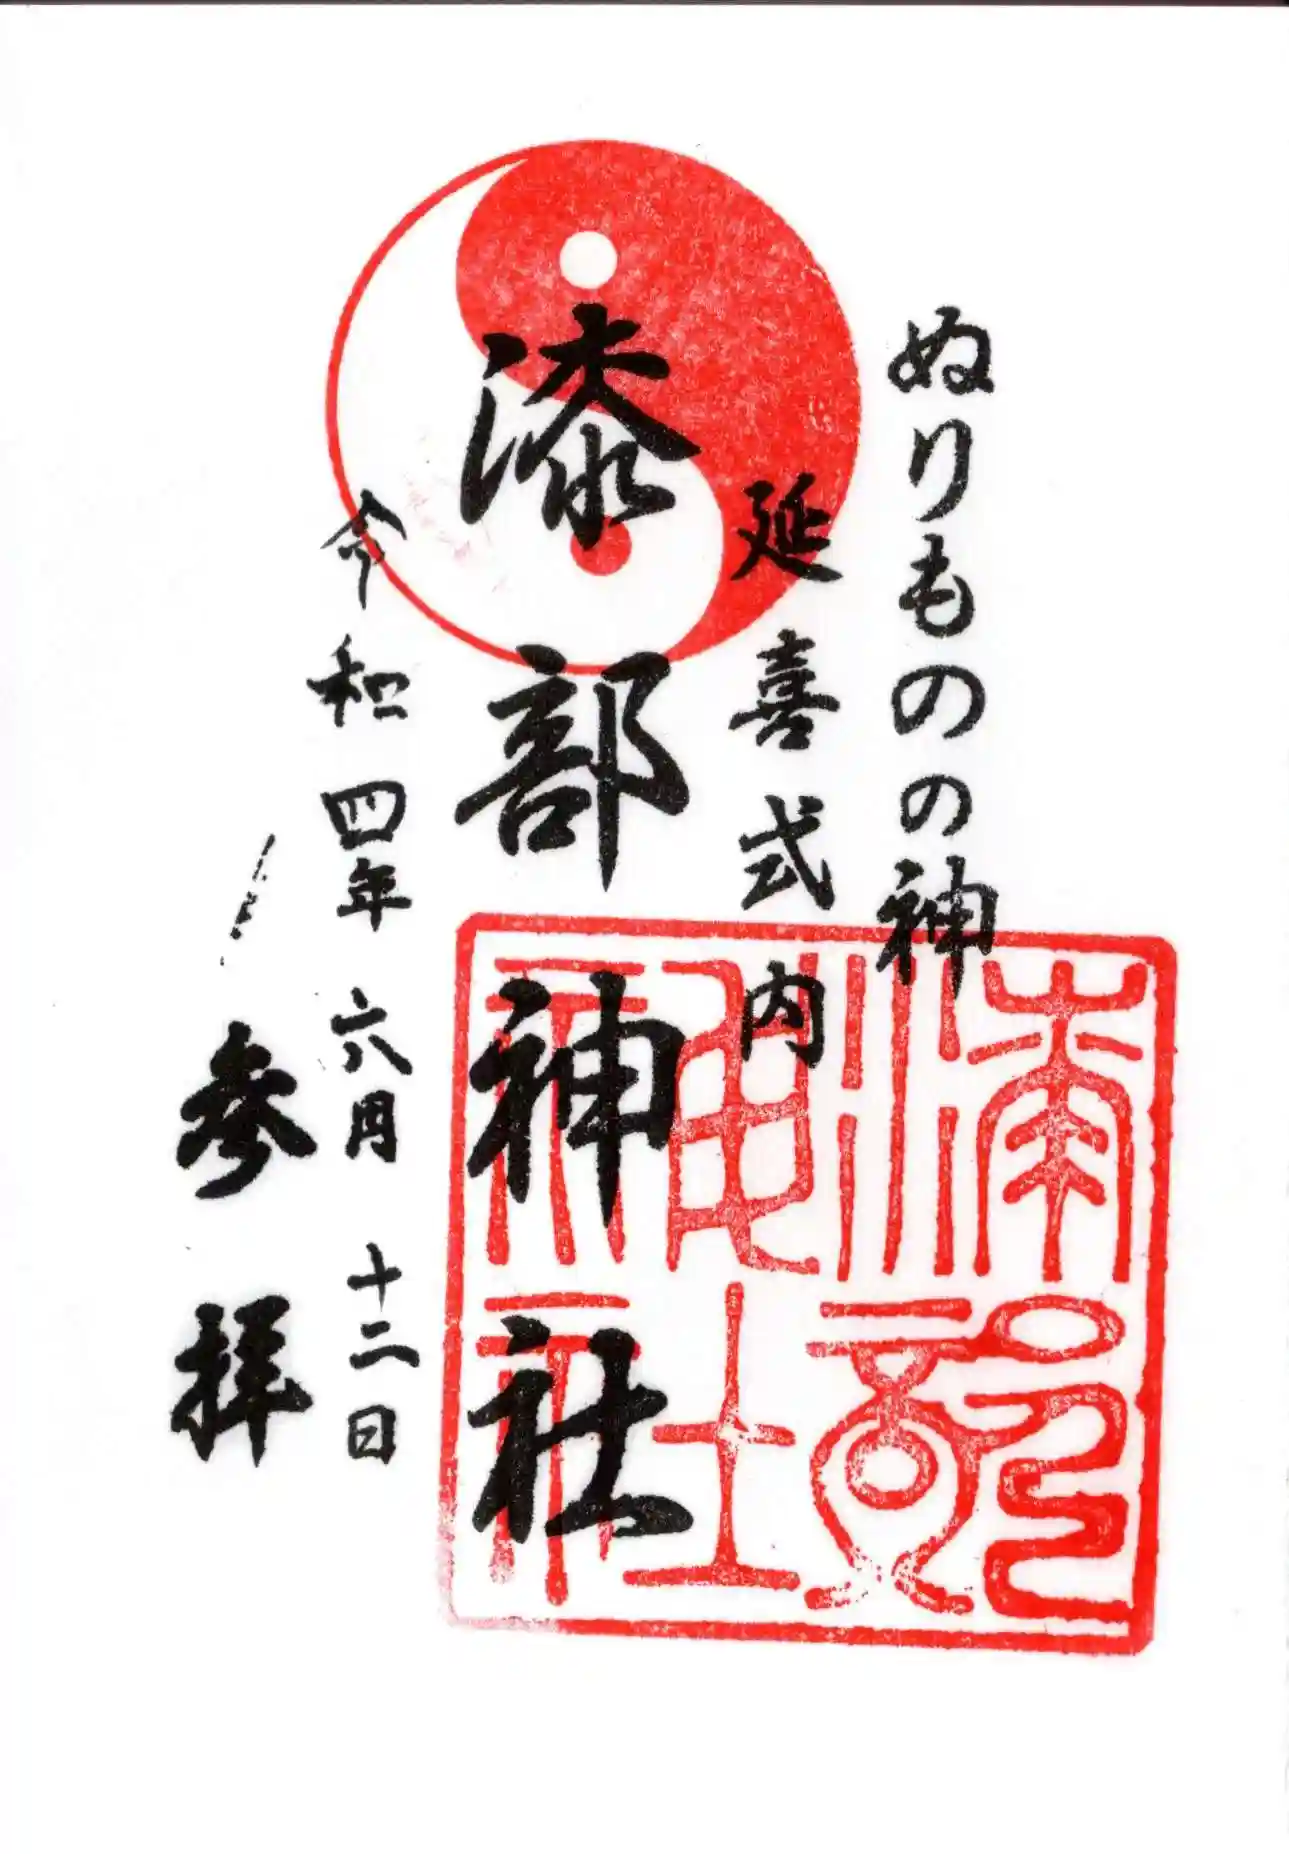 ぬりものの神
延喜式内
漆部神社
漆部
神社
令和四年六月十二日
参拝